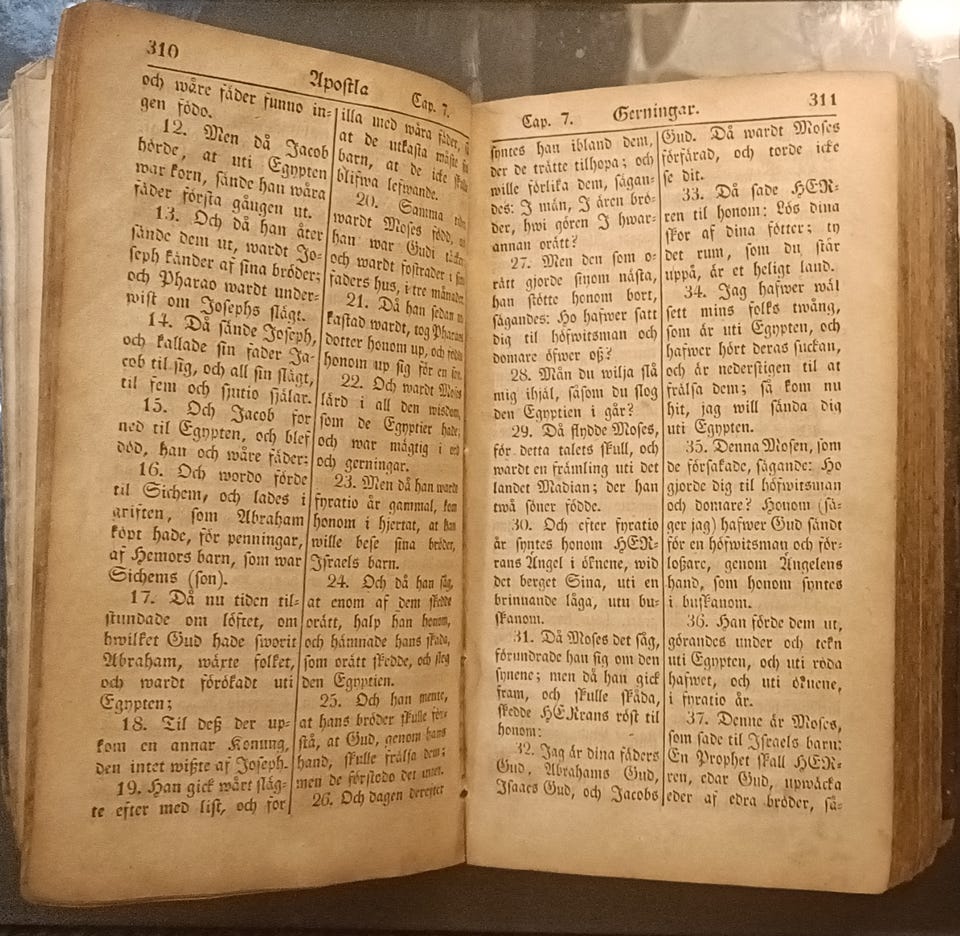 310
Apostla
Cap. 7.
och wåre fäder funno in-
gen födo.
12. Men då Jacob
hörde, at uti Egypten
war korn, sände han wåra
fäder första gången ut.
13. Och då han åter
sände dem ut, wardt Jo-
seph känder af sina bröder;
och Pharao wardt under-
wist om Josephs slägt.
14. Då sände Joseph,
och kallade sin fader Ja-
cob til sig, och all sin slägt,
til fem och sjutio själar.
15. Och Jacob for
ned til Egypten, och blef
död, han och wåre fäder;
16. Och wordo förde
til Sichem, och lades i
griften, som Abraham
köpt hade, för penningar,
af Hemors barn, som war
Sichems (son).
17. Då nu tiden til-
stundade om löftet, om
hwilket Gud hade sworit
Abraham, wäxte folket,
och wardt förökadt uti
Egypten;
18. Til deß der up-
kom en annar Konung,
den intet wißte af Joseph.
19. Han gick wårt släg-
te efter med list, och for
illa med wåra fäder,
at de utkasta måste
barn, at de icke
blifwa lefwande.
20. Samma
wardt Moses född,
han war Gudi
och wardt fostrader i
faders hus, i tre månader.
21. Då han sedan
kastad wardt, tog Pharaos
dotter honom up, och
honom up sig för en
22. Och wardt Moses
lärd i all den wisdom,
som de Egyptier hade;
och war mägtig i ord
och gerningar.
23. Men då han wardt
fyratio år gammal, kom
honom i hjertat, at han
wille bese sina bröder,
Israels barn.
24. Och då han såg,
at enom af dem skedde
orätt, halp han honom,
och hämnade hans skada,
som orätt skedde, och slog
den Egyptien.
25. Och han mente,
at hans bröder skulle för-
stå, at Gud, genom hans
hand, skulle frälsa dem;
men de förstodo det intet.
26. Och dagen derefter
Cap. 7.
Gerningar.
311
syntes han ibland dem,
der de trätte tilhopa; och
wille förlika dem, sägan-
des: I män, I ären brö-
der, hwi gören I hwar-
annan orätt?
27. Men den som o-
rätt gjorde sinom nästa,
han stötte honom bort,
sägandes: Ho hafwer satt
dig til höfwitsman och
domare öfwer oß?
28. Män du wilja slå
mig ihjäl, såsom du slog
den Egyptien i går?
29. Då flydde Moses,
för detta talets skull, och
wardt en främling uti det
landet Madian; der han
twå söner födde.
30. Och efter fyratio
år syntes honom HER-
rans Ängel i öknene, wid
det berget Sina, uti en
brinnande låga, utu bu-
skanom.
31. Då Moses det såg,
förundrade han sig om den
synene; men då han gick
fram, och skulle skåda,
skedde HERrans röst til
honom:
32. Jag är dina fäders
Gud, Abrahams Gud,
Isaacs Gud, och Jacobs
Gud. Då wardt Moses
förfärad, och torde icke
se dit.
33. Då sade HER-
ren til honom: Lös dina
skor af dina fötter; ty
det rum, som du står
uppå, är et heligt land.
34. Jag hafwer wäl
sett mins folks twång,
som är uti Egypten, och
hafwer hört deras suckan,
och är nederstigen til at
frälsa dem; så kom nu
hit, jag will sända dig
uti Egypten.
35. Denna Mosen, som
de försakade, sägande: Ho
gjorde dig til höfwitsman
och domare? Honom (sä-
ger jag) hafwer Gud sändt
för en höfwitsman och för-
loßare, genom Ängelens
hand, som honom syntes
i buskanom.
36. Han förde dem ut,
görandes under och tekn
uti Egypten, och uti röda
hafwet, och uti öknene,
i fyratio år.
37. Denne är Moses,
som sade til Israels barn:
En Prophet skall HER-
ren, edar Gud, upwäcka
eder af edra bröder, så-